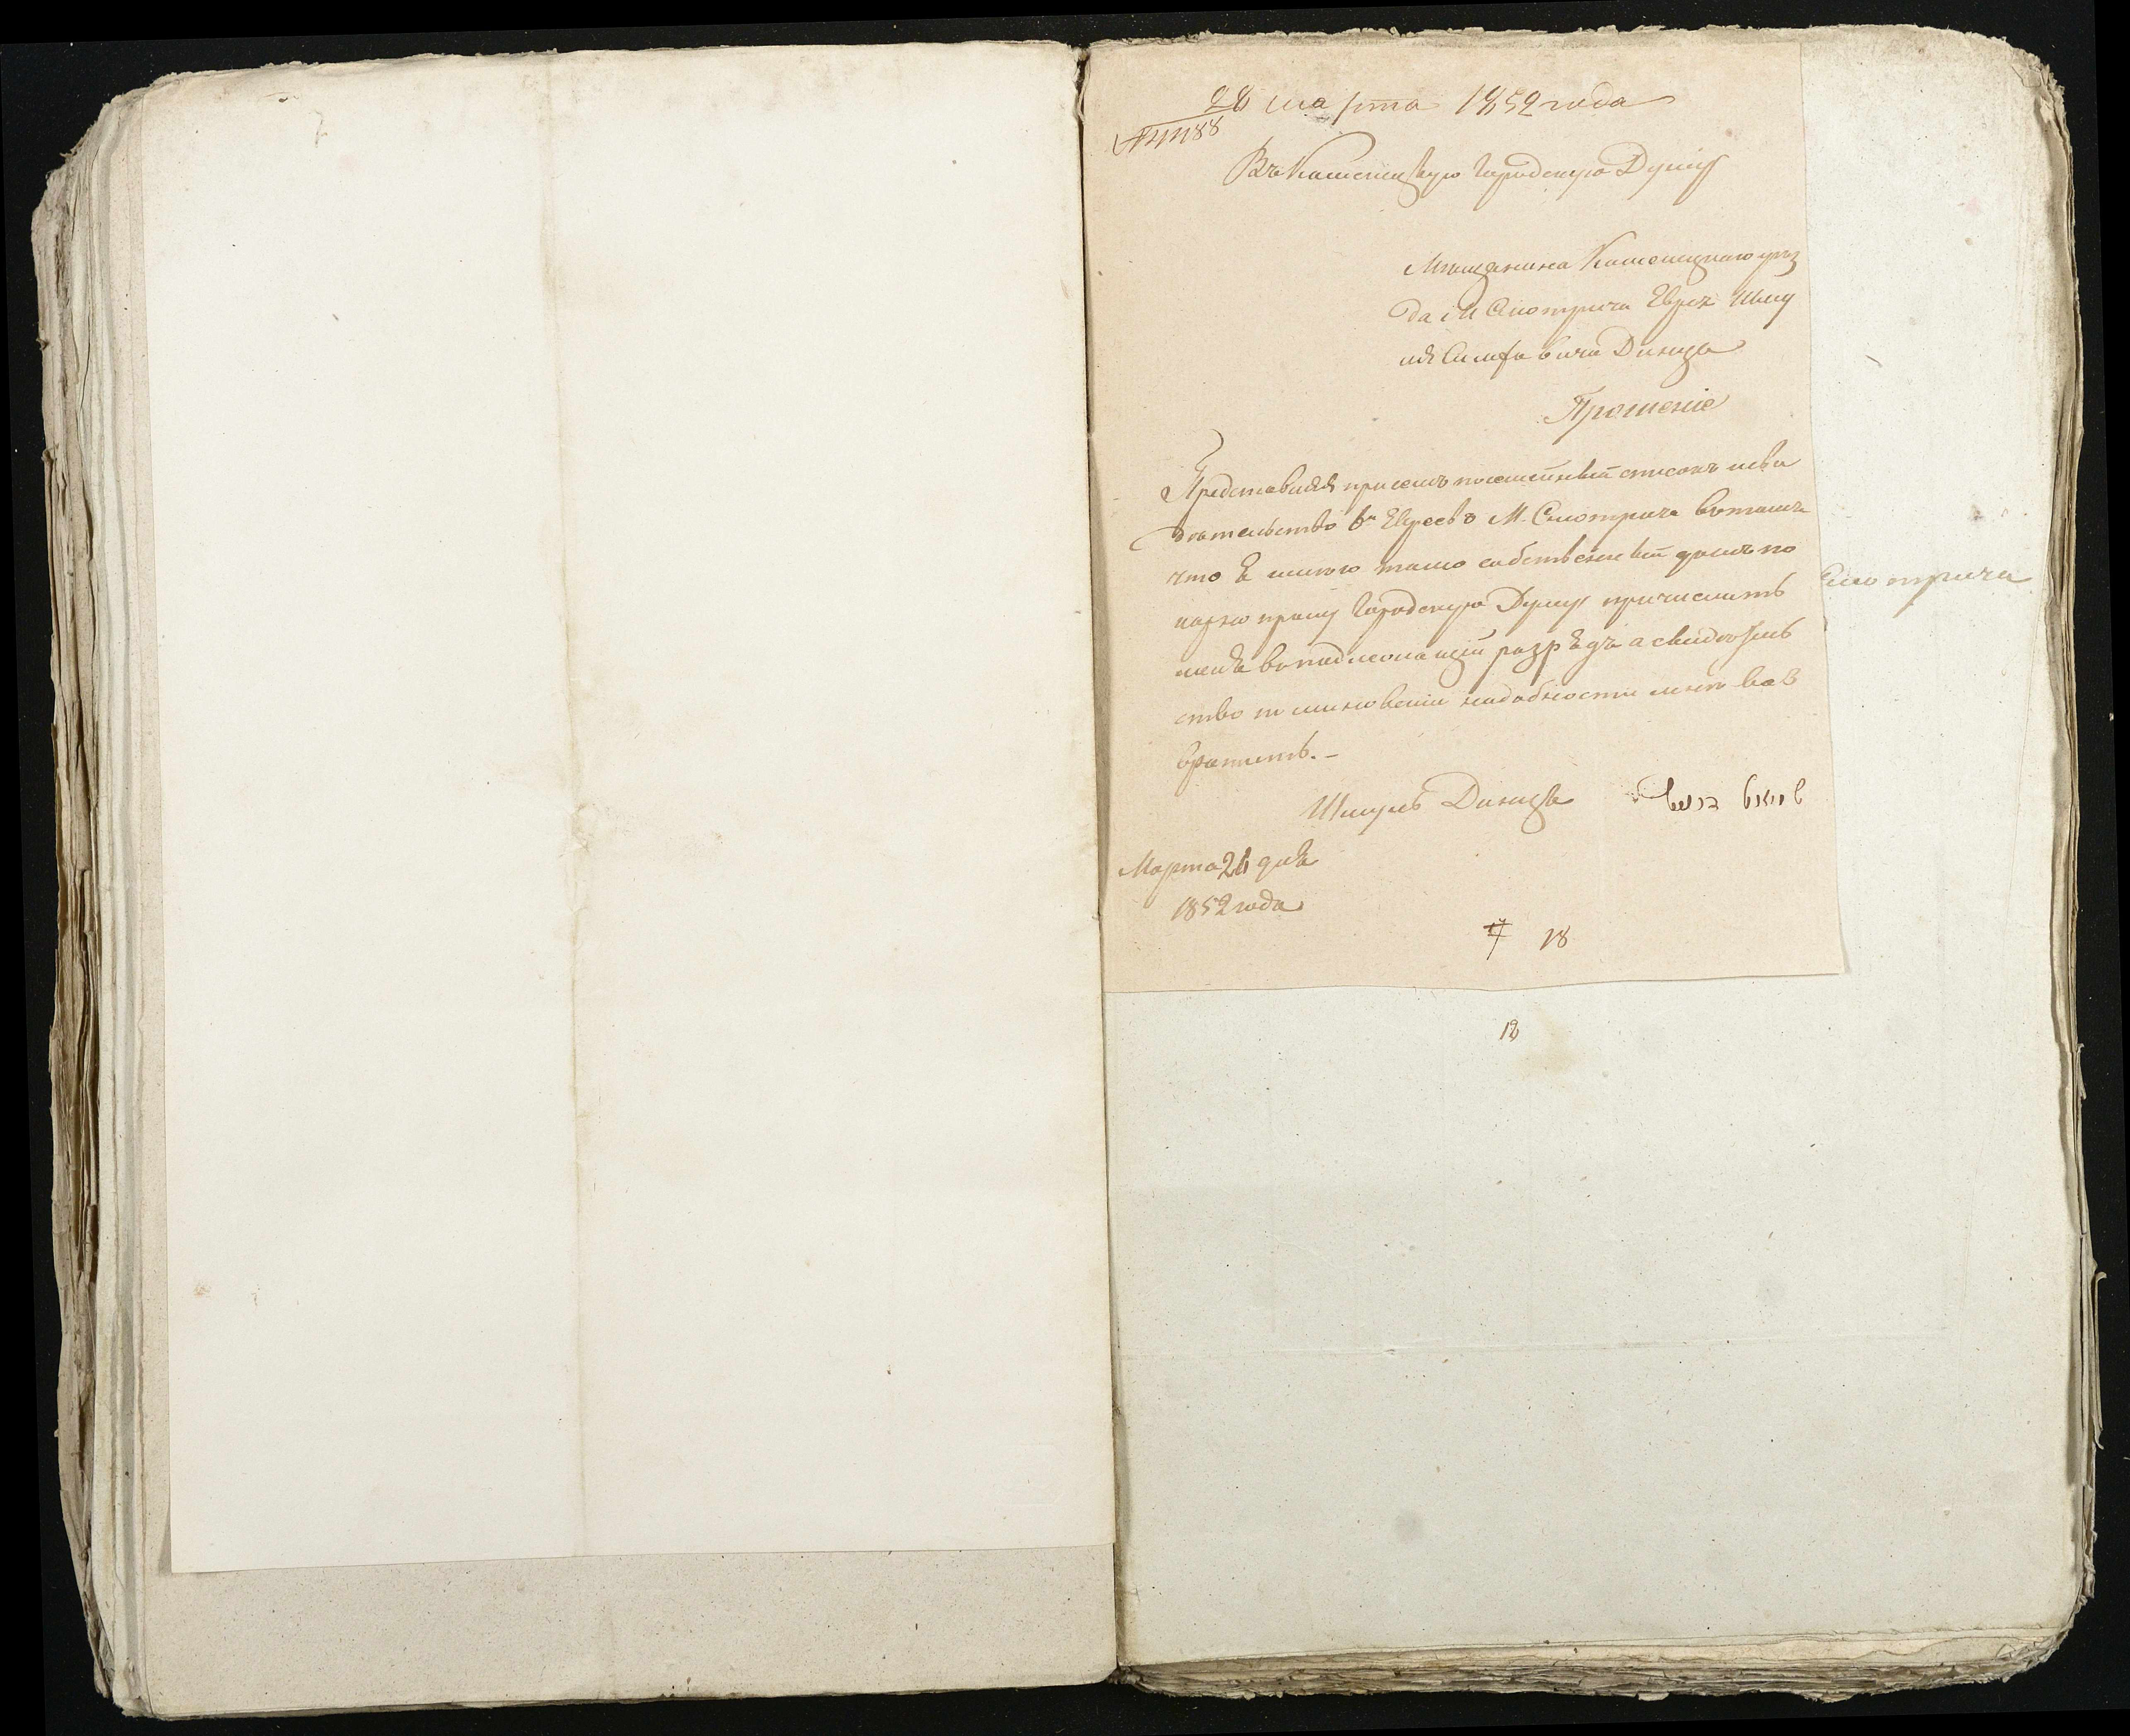 28 марта 1852 года
№ 4188
Въ Каменецкую Городскую Думу
Мещанина Каменецкаго уез
да М Смотрича Еврея Шму
ля Симховича Диница
Прошение
Представляя присемъ посемейный список исви
детельство 6ти Евреевъ М. Смотрича вотомъ
что я имею тамо собственный домъ по
карно прошу Городскую Думу причислить
меня вонадлежащий разрядъ а свидетель
ство поминовении надобности мне воз
вратить. –
Шмуль Диницъ
Марта 26 дня
1852 года
17 18
18
Смотрича